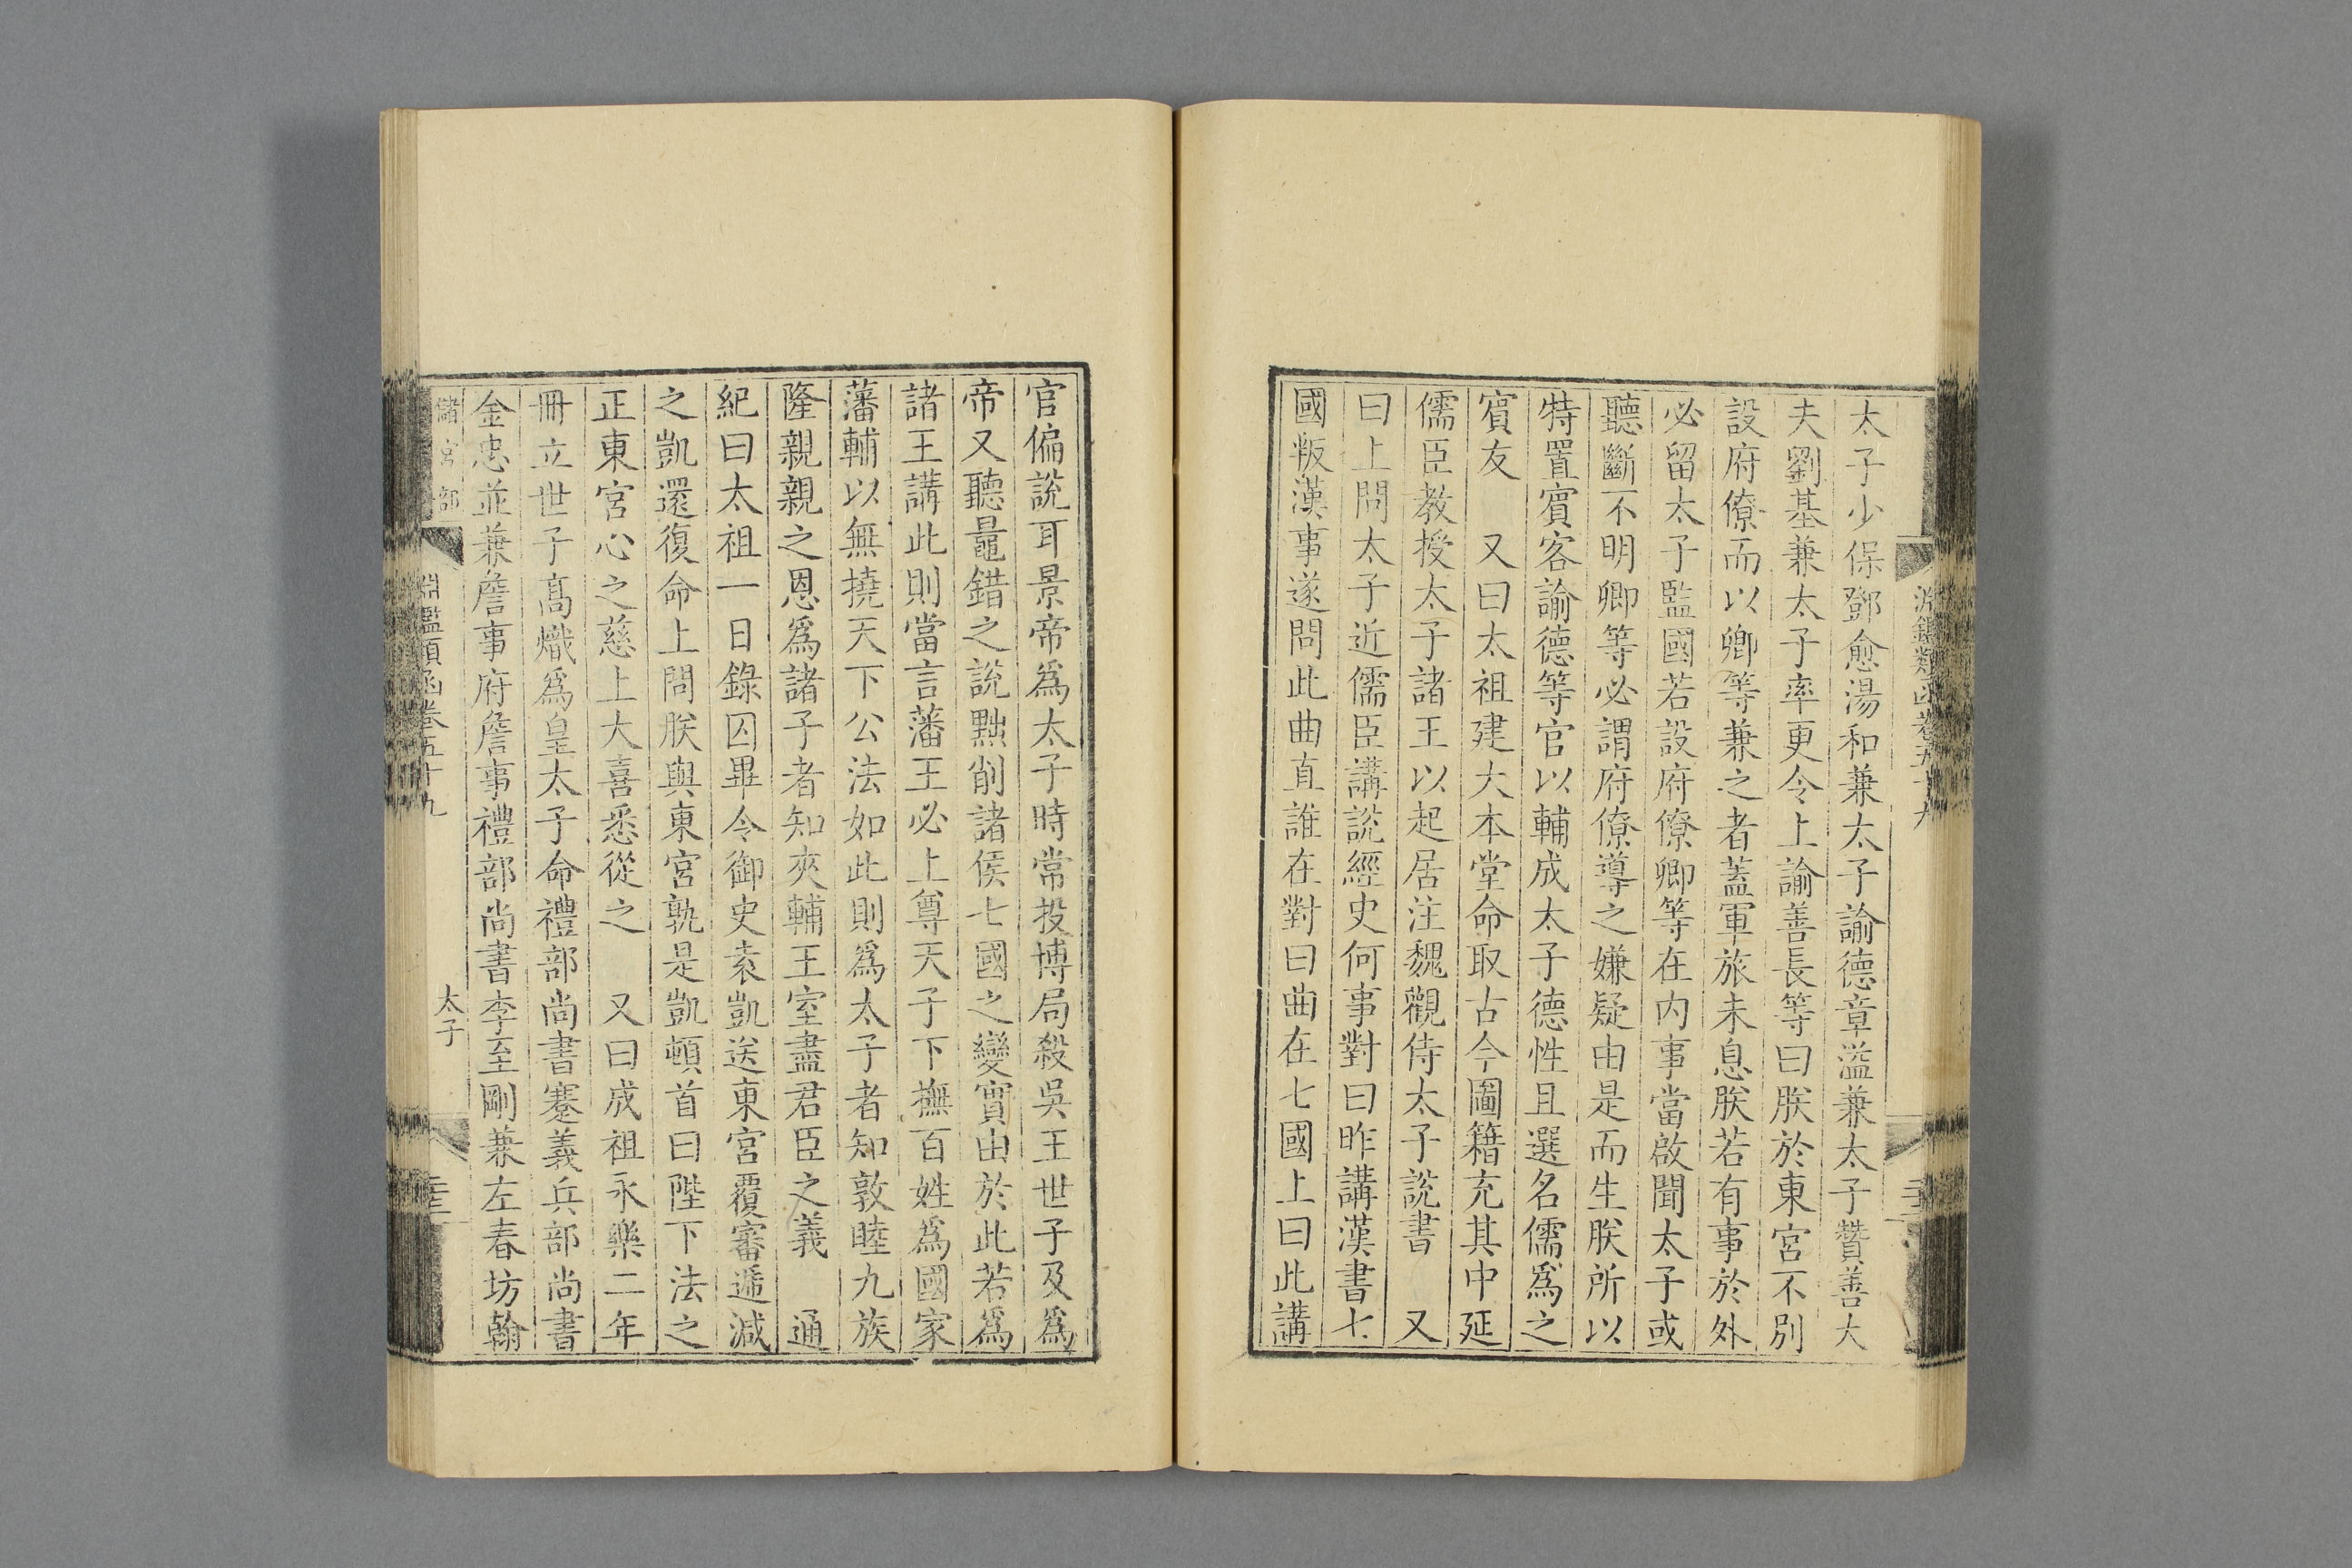 淵鑑類函卷五十九
太子少保鄧愈湯和兼太子諭德章溢兼太子贊善大
夫劉基兼太子率更令上諭善長等曰朕於東宮不別
設府僚而以卿等兼之者蓋軍旅未息朕若有事於外
必留太子監國若設府僚卿等在内事當啟聞太子或
聽斷不明卿等必謂府僚導之嫌疑由是而生朕所以
特置賓客諭德等官以輔成太子德性且選名儒爲之
賓友　又曰太祖建大本堂命取古今圖籍充其中延
儒臣教授太子諸王以起居注魏觀侍太子說書　又
曰上問太子近儒臣講說經史何事對曰昨講漢書七
國叛漢事遂問此曲直誰在對曰曲在七國上曰此講
官偏說耳景帝爲太子時常投博局殺吳王世子及爲
帝又聽鼂錯之說黜削諸侯七國之變實由於此若爲
諸王講此則當言藩王必上尊天子下撫百姓爲國家
藩輔以無撓天下公法如此則爲太子者知敦睦九族
隆親親之恩爲諸子者知夾輔王室盡君臣之義　通
紀曰太祖一日錄囚畢令御史袁凱送東宮覆審遞減
之凱還復命上問朕與東宮孰是凱頓首曰陛下法之
正東宮心之慈上大喜悉從之　又曰成祖永樂二年
冊立世子高熾爲皇太子命禮部尚書蹇義兵部尚書
金忠並兼詹事府詹事禮部尚書李至剛兼左春坊翰
儲宮部　淵鑑類函卷五十九　太子